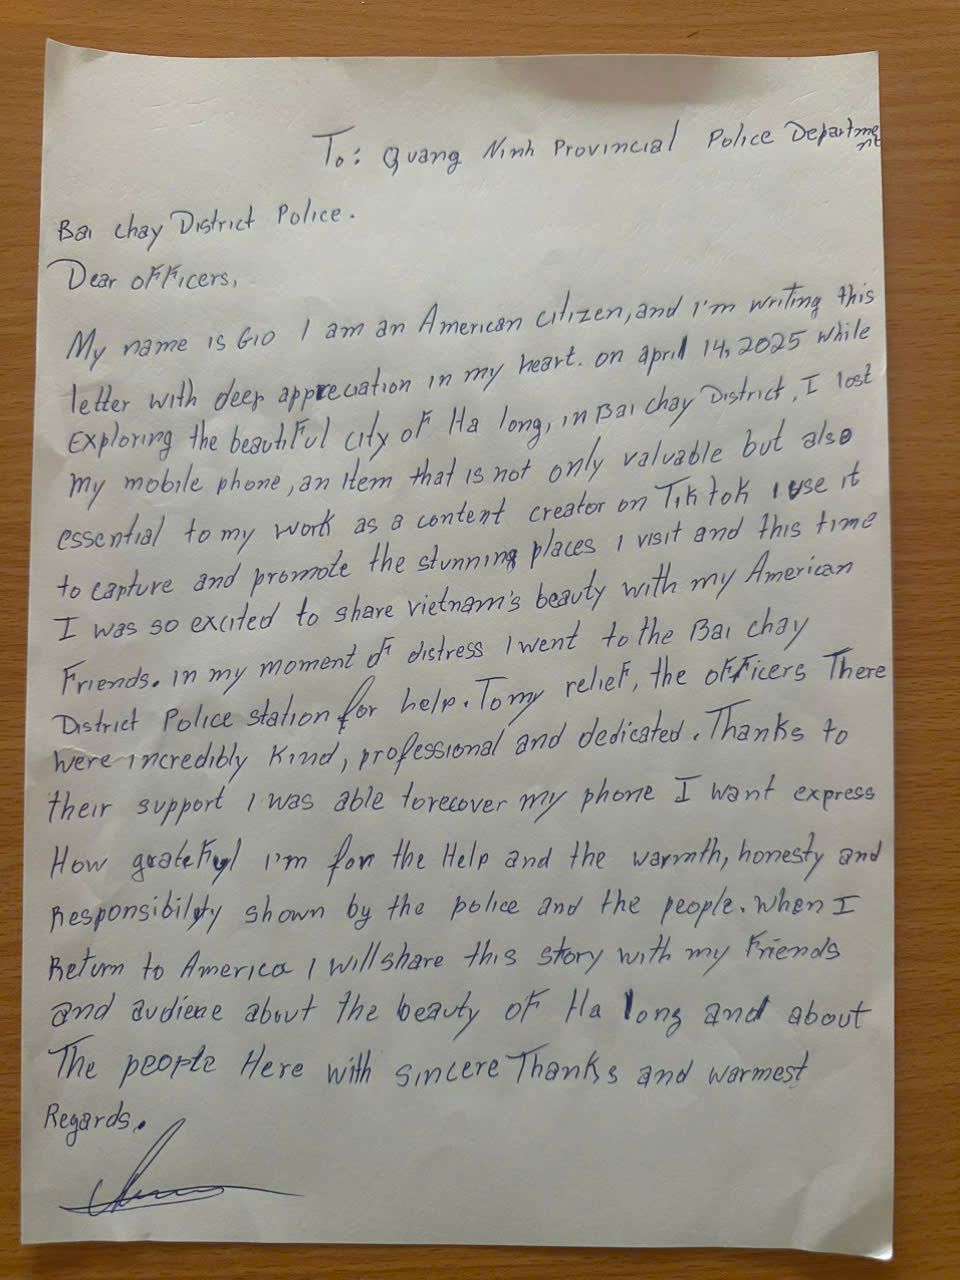 To: Quang Ninh Provincial Police Department
Bai chay District Police.
Dear officers,
My name is Gio I am an American citizen, and I'm writing this
letter with deep appreciation in my heart. on april 14, 2025 while
Exploring the beautiful city of Ha long, in Bai chay District, I lost
my mobile phone, an item that is not only valuable but also
essential to my work as a content creator on Tik tok I use it
to capture and promote the stunning places I visit and this time
I was so excited to share vietnam's beauty with my American
Friends. in my moment of distress I went to the Bai chay
District Police station for help. To my relief, the officers There
were incredibly kind, professional and dedicated. Thanks to
their support I was able to recover my phone I want express
How grateful I'm for the Help and the warmth, honesty and
Responsibility shown by the police and the people. When I
Return to America I will share this story with my Friends
and audiene about the beauty of Ha long and about
The people Here with sincere Thanks and warmest
Regards.